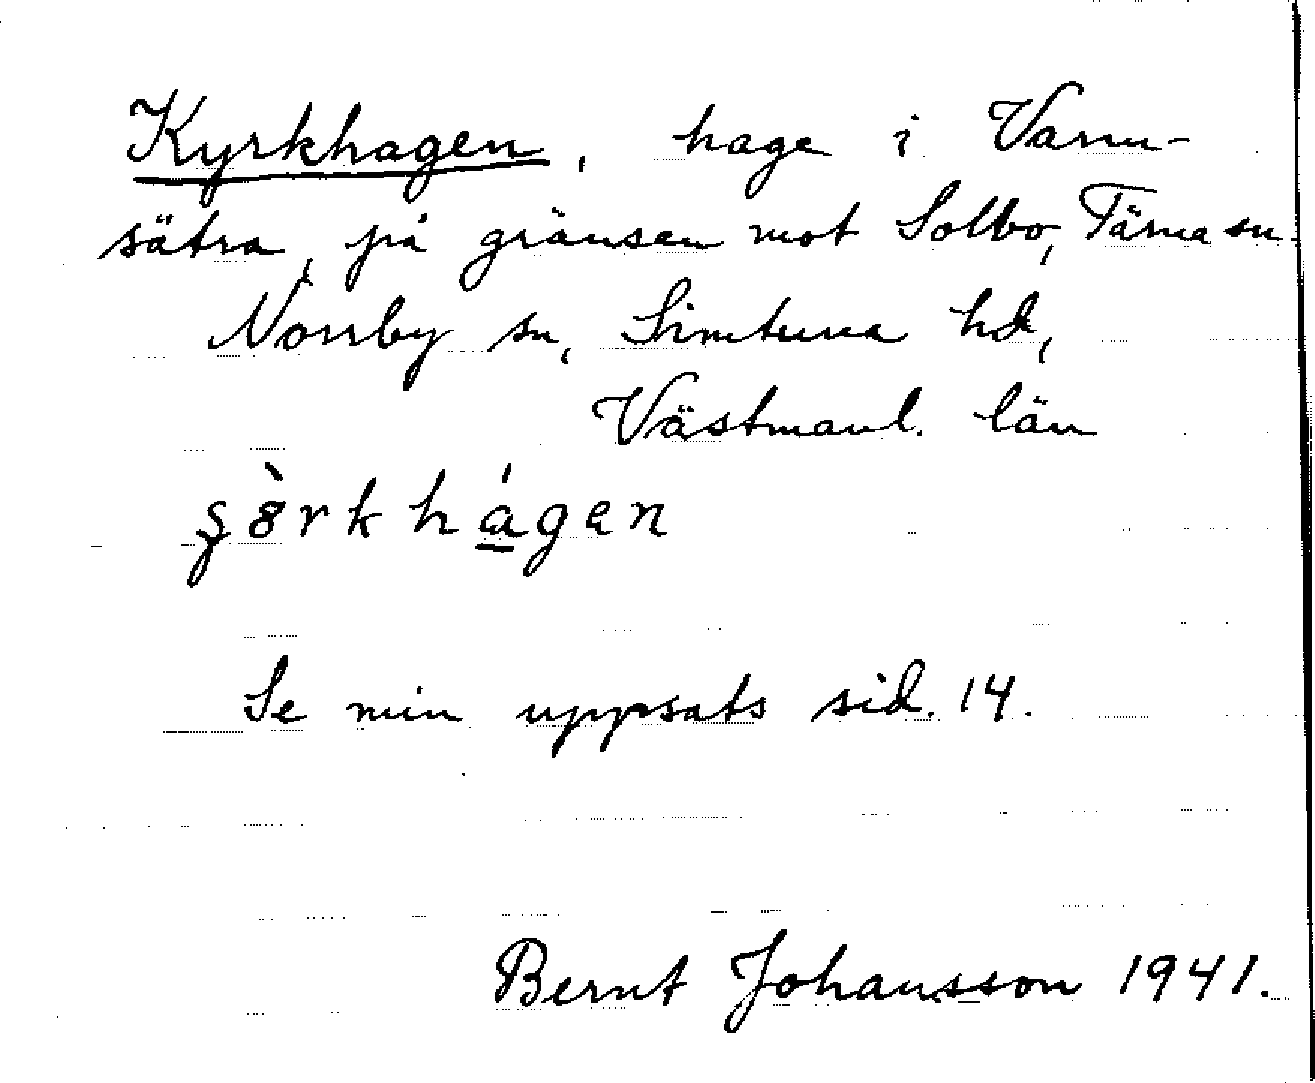 Kyrkhagen, hage i Varm-
sätra, på gränsen mot Solbo, Tärna sn.
Norrby sn, Simtuna hd,
Västmanl. län
Se min uppsats sid. 14.
Bernt Johansson 1941.